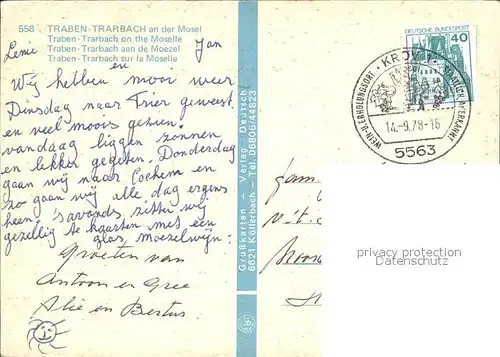 558 TRABEN-TRARBACH an der Mosel
Traben-Trarbach on the Moselle
Traben-Trarbach aan de Moezel
Traben-Trarbach sur la Moselle
Lenie en Jan
Wij hebben mooi weer
Dinsdag naar Trier geweest
en veel moois gezien.
vandaag liggen zonnen
en lekker gegeten. Donderdag
gaan wij naar Cochem en
zo gaan wij alle dag ergens
heen 's avonds zitten wij
gezellig te kaarten met een
glas, moezelwijn:
Groeten van
Antoon en Gree
Alie en Bertus
Grußkarten - Verlag Deutsch
6621 Köllerbach - Tel. 06806/44823
DEUTSCHE BUNDESPOST
40
WEIN-U. ERHOLUNGSORT
14.-9.78-16
5563
Fam.
privacy protection
Datenschutz